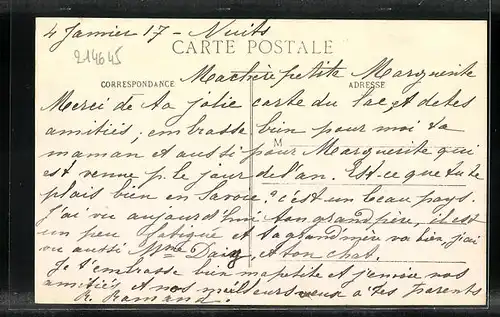 4 Janvier 17 - Nuits
CARTE POSTALE
214645
CORRESPONDANCE
ADRESSE
Ma chère petite Marguerite
Merci de ta jolie carte du lac, et de tes
amitiés, embrasse bien pour moi ta
M
maman et aussi pour Marguerite qui
est venue p. le jour de l'an. Est-ce que tu te
plais bien en Savoie? c'est un beau pays.
J'ai vu aujourd'hui ton grand père, il est
un peu fatigué et ta grand'mère va bien, j'ai
vu aussi Mme et ton chat.
Je t'embrasse bien ma petite et j'envoie nos
amitiés et nos meilleurs vœux à tes parents
R. Ramand.